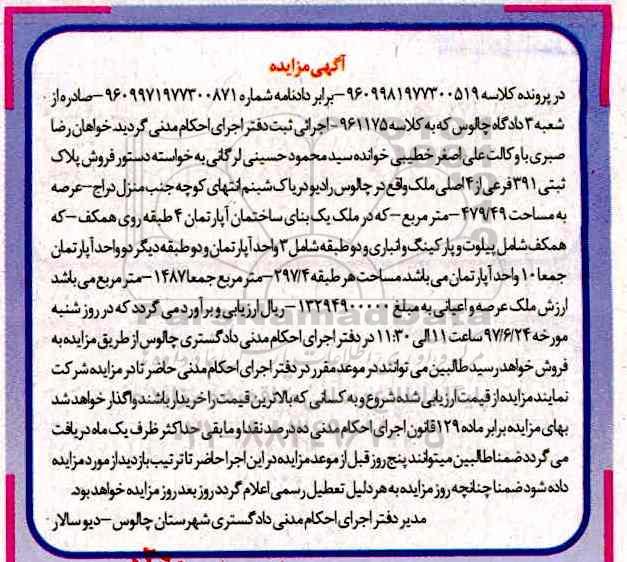 آگهی مزایده
در پرونده کلاسه ۹۶۰۹۹۸۱۹۷۷۳۰۰۵۱۹ – برابر دادنامه شماره ۹۶۰۹۹۷۱۹۷۷۳۰۰۸۷۱ – صادره از
شعبه ۳ دادگاه چالوس که به کلاسه ۹۶۱۱۷۵ - اجرائی ثبت دفتر اجرای احکام مدنی گردید. خواهان رضا
صبری با وکالت علی اصغر خطیبی خوانده سید محمود حسینی لرگانی به خواسته دستور فروش پلاک
ثبتی ۳۹۱ فرعی از ۴ اصلی ملک واقع در چالوس رادیو دریاک شبنم انتهای کوچه جنب منزل دراج – عرصه
به مساحت ۴۷۹/۴۹ – متر مربع – که در ملک یک بنای ساختمان آپارتمان ۴ طبقه روی همکف – که
همکف شامل پیلوت و پارکینگ و انباری و دو طبقه شامل ۳ واحد آپارتمان و دو طبقه دیگر دو واحد آپارتمان
جمعا ۱۰ واحد آپارتمان می باشد. مساحت هر طبقه ۲۹۷/۴ – متر مربع جمعا ۱۴۸۷ – متر مربع می باشد
ارزش ملک عرصه و اعیانی به مبلغ ۱۳۲۹۴۹۰۰۰۰۰ – ریال ارزیابی و برآورد می گردد که در روز شنبه
مورخه ۹۷/۶/۲۴ ساعت ۱۱ الی ۱۱:۳۰ در دفتر اجرای احکام مدنی دادگستری چالوس از طریق مزایده به
فروش خواهد رسید طالبین می توانند در موعد مقرر در دفتر اجرای احکام مدنی حاضر تا در مزایده شرکت
نمایند مزایده از قیمت ارزیابی شده شروع و به کسانی که بالاترین قیمت را خریدار باشند واگذار خواهد شد
بهای مزایده برابر ماده ۱۲۹ قانون اجرای احکام مدنی ده درصد نقدا و مابقی حداکثر ظرف یک ماه دریافت
می گردد ضمنا طالبین میتوانند پنج روز قبل از موعد مزایده در این اجرا حاضر تا ترتیب بازدید از مورد مزایده
داده شود ضمنا چنانچه روز مزایده به هر دلیل تعطیل رسمی اعلام گردد روز بعد روز مزایده خواهد بود.
مدیر دفتر اجرای احکام مدنی دادگستری شهرستان چالوس – دیوسالار
ParsNamadData